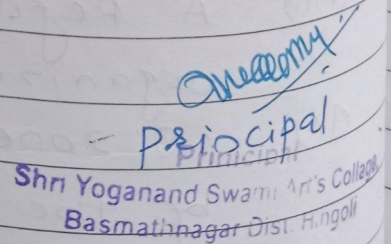 Priocipal
Principal
Shri Yoganand Swami Art's Collage,
Basmathnagar Dist. Hingoli